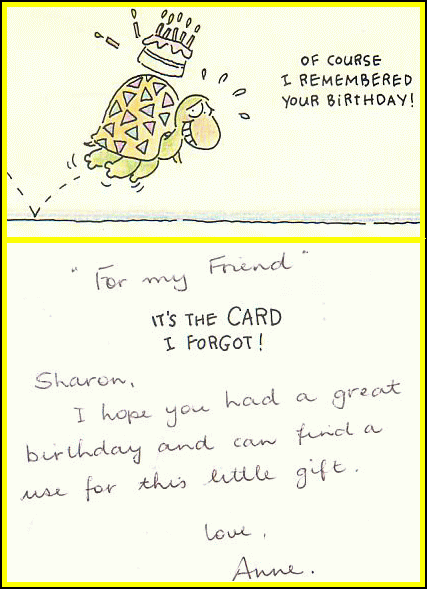 OF COURSE
I REMEMBERED
YOUR BIRTHDAY!
"For my Friend"
IT'S THE CARD
I FORGOT!
Sharon,
I hope you had a great
birthday and can find a
use for this little gift.
Love,
Anne.